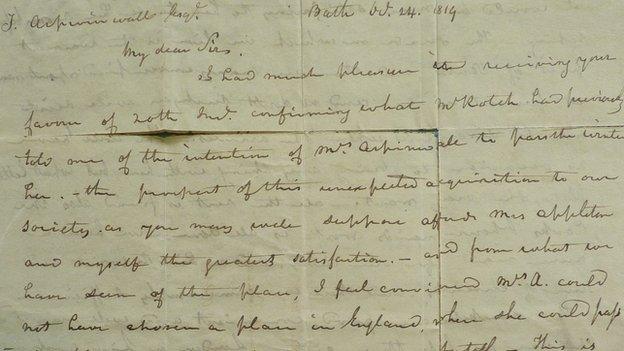 T. Aspinwall Esqr. Bath Oct. 24. 1819
My dear Sir.
I had much pleasure in receiving your
favour of 20th Inst. confirming what Mr Rotch had previously
told me of the intention of Mrs Aspinwale to pass the winter
here. - the prospect of this unexpected acquisition to our
society. as you may well suppose affords Mrs appleton
and myself the greatest satisfaction. - and from what we
have seen of the place, I feel convinced Mrs A. could
not have chosen a place in England, where she could pass
This is